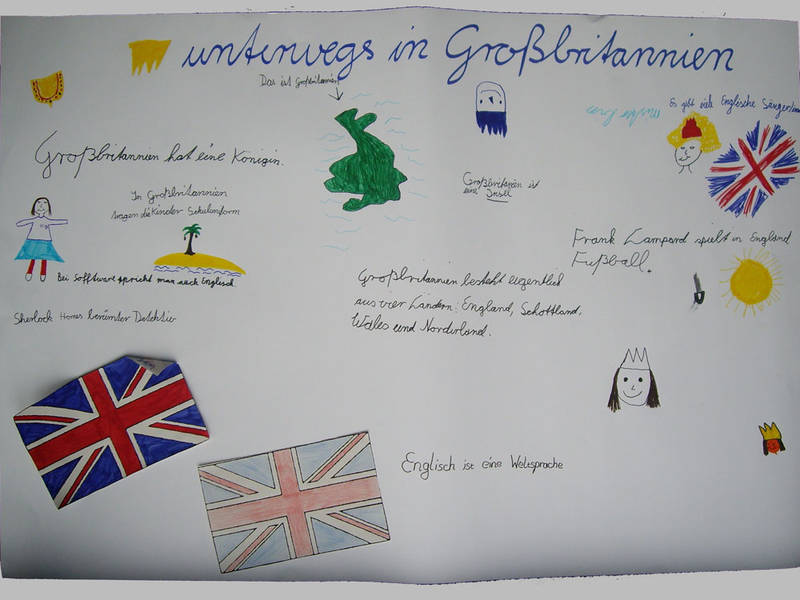 unterwegs in Großbritannien
Das ist Großbritannien
Es gibt viele Englische
Großbritannien hat eine Königin.
In Großbritannien
tragen die Kinder Schuluniform
Großbritanien ist
eine Insel
Frank Lampard spielt in England
Fußball.
Bei Sofftware spricht man auch Englisch
Großbritannien besteht eigentlich
aus vier Ländern: England, Schottland,
Wales und Nordirland.
Sherlock Homes berümter Detektiv
Englisch ist eine Weltsprache